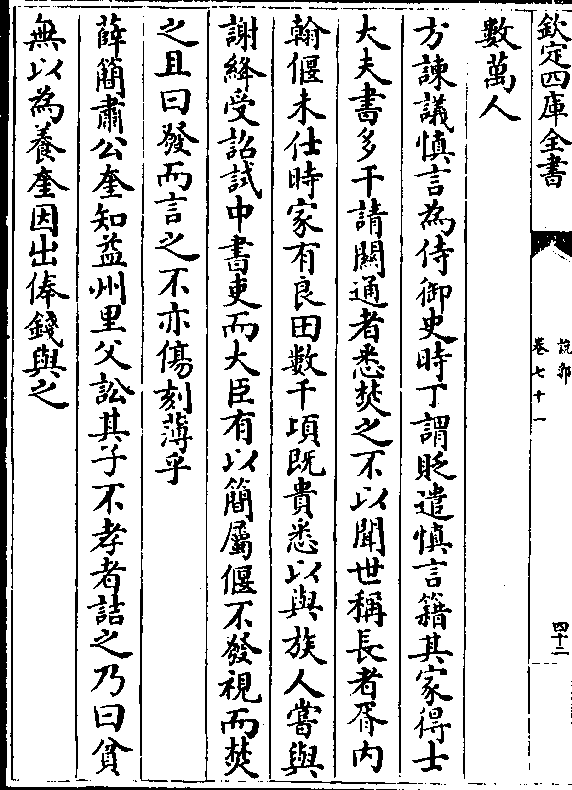 欽定四庫全書
說郛
卷七十一
四十二
數萬人
方諫議慎言為侍御史時丁謂貶遣慎言籍其家得士
大夫書多干請闗通者悉焚之不以聞世稱長者胥内
翰偃未仕時家有良田數千項既貴悉以與族人嘗與
謝絳受詔試中書吏而大臣有以簡屬偃不發視而焚
之且曰發而言之不亦傷刻薄乎
薛簡肅公奎知益州里父訟其子不孝者詰之乃曰貧
無以為養奎因出俸錢與之